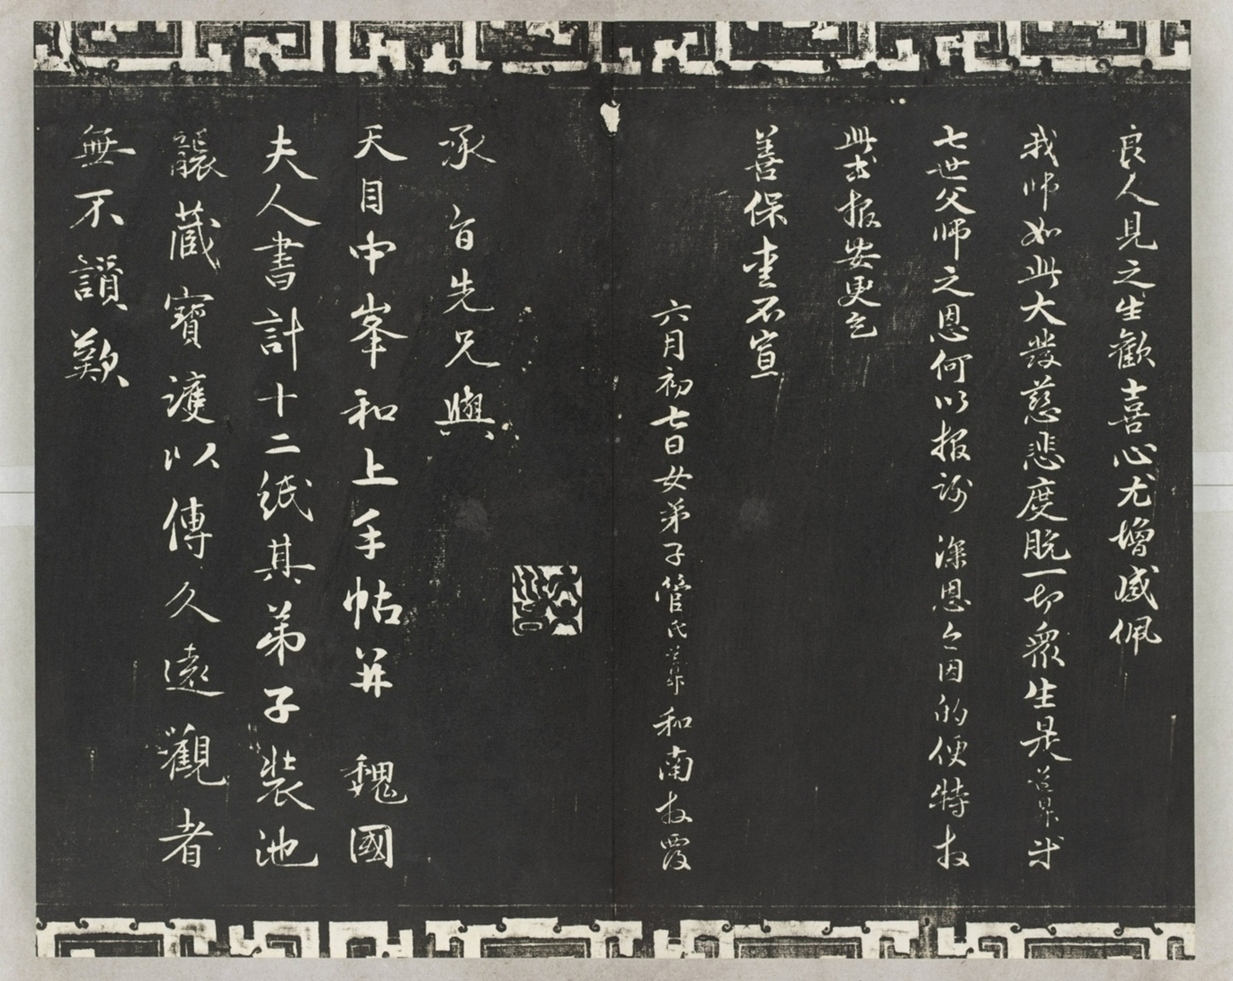 良人見之生歡喜心尤增感佩
我師如此大發慈悲度脫一切眾生是道昇千
七世父師之恩何以報謝 深恩今因的便特拜
此書報安更乞
善保重不宣
六月初七日女弟子管氏道昇和南拜覆
承旨先兄與
天目中峯和上手帖并 魏國
夫人書計十二紙其弟子裝池
襲藏寶護以傳久遠觀者
無不讚歎